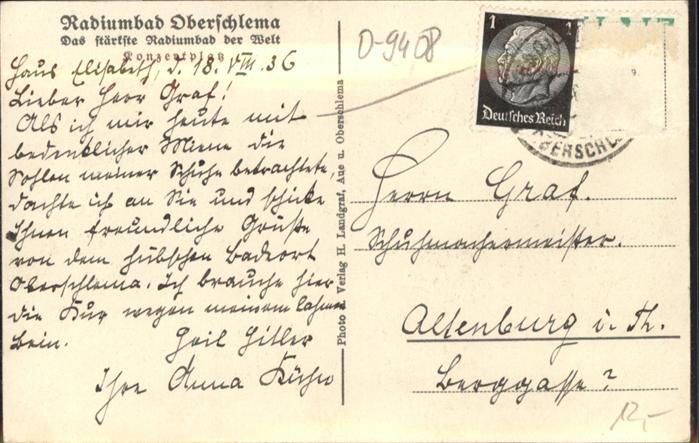 Radiumbad Oberschlema
Das stärkste Radiumbad der Welt
Konzertplatz
Haus Elisabeth, d. 18. VIII. 36
Lieber Herr Graf!
Als ich mir heute mit
bedenklicher Miene die
Sohlen meiner Schuhe betrachtete,
dachte ich an Sie und schicke
Ihnen freundliche Grüße
von dem hübschen Badeort
Oberschlema. Ich brauche hier
die Kur wegen meinem lahmen
Bein.
Heil Hitler
Ihre Anna Kühn
Photo u. Verlag H. Landgraf, Aue u. Oberschlema
D-9408
1 1
Deutsches Reich
OBERSCHL
Herrn Graf.
Schuhmachermeister.
Altenburg i. Th.
Berggasse?
12,-